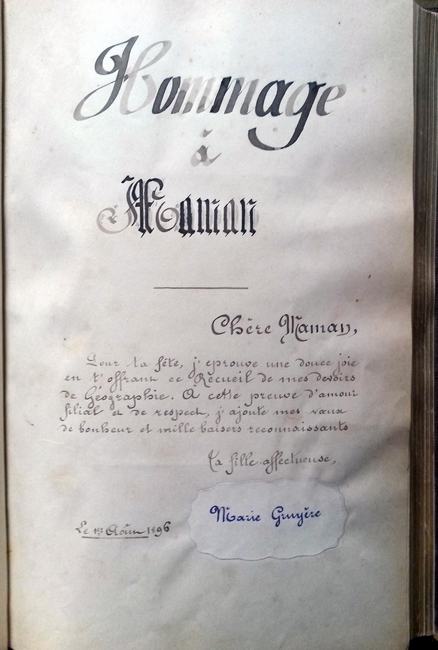 Hommage
à
Maman
Chère Maman,
Pour ta fête, j'éprouve une douce joie
en t'offrant ce Recueil de mes devoirs
de Géographie. À cette preuve d'amour
filial et de respect, j'ajoute mes vœux
de bonheur et mille baisers reconnaissants
Ta fille affectueuse,
Marie Gruyère
Le 15 Août 1896